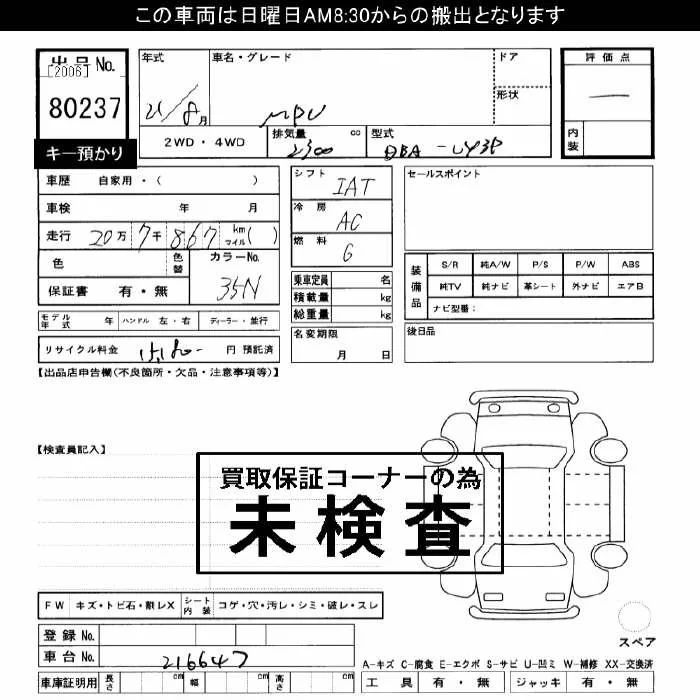 この車両は日曜日AM8:30からの搬出となります
出品番号 No. [2006]
80237
キー預かり
年式 21/8月
車名・グレード MPV
ドア
形状
2WD・4WD
排気量 2300 cc
型式 DBA-LY3P
評価点 —
内装
車歴 自家用・( )
車検 年 月
走行 20万7千867 km マイル( )
色
色替
カラーNo. 35N
保証書 有・無
シフト IAT
冷房 AC
燃料 G
乗車定員 名
積載量 kg
総重量 kg
セールスポイント
装備品
S/R 純A/W P/S P/W ABS
純TV 純ナビ 革シート 外ナビ エアB
ナビ型番:
モデル年式 年 ハンドル 左・右 ディーラー・並行
名変期限 月 日
後日品
リサイクル料金 円 預託済
【出品店申告欄(不良箇所・欠品・注意事項等)】
【検査員記入】
買取保証コーナーの為
未検査
FW キズ・トビ石・割レX シート内装 コゲ・穴・汚レ・シミ・破レ・スレ
登録 No.
車台 No. 216647
スペア
車庫証明用 長さ cm 幅 cm 高さ cm
A-キズ C-腐食 E-エクボ S-サビ U-凹ミ W-補修 XX-交換済
工具 有・無 ジャッキ 有・無